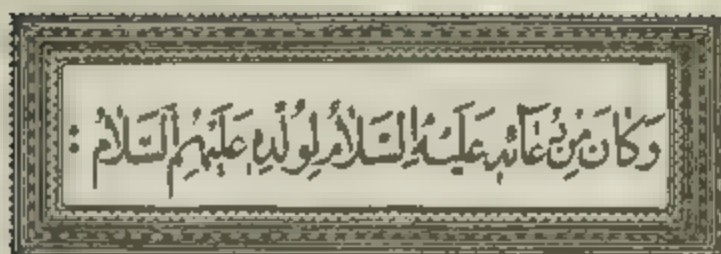 وَكَانَ مِنْ دُعَائِهِ عَلَيْهِ السَّلَامُ لِوُلْدِهِ عَلَيْهِمُ السَّلَامُ :